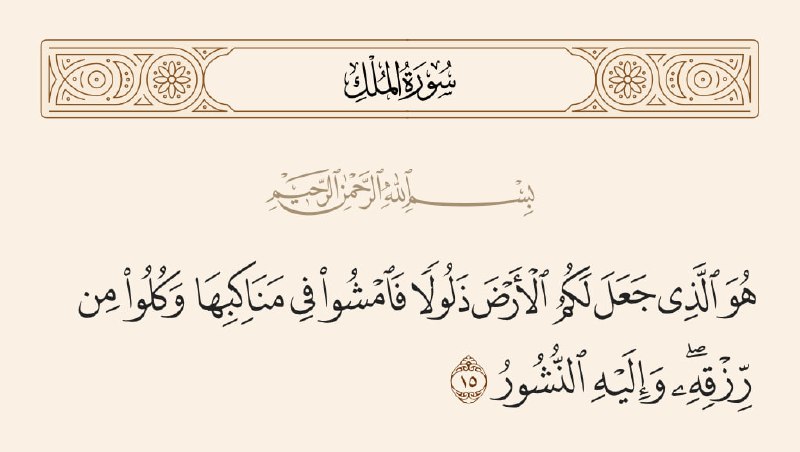 سُورَةُ المُلْكِ
بِسْمِ ٱللَّهِ ٱلرَّحْمَٰنِ ٱلرَّحِيمِ
هُوَ ٱلَّذِى جَعَلَ لَكُمُ ٱلْأَرْضَ ذَلُولًا فَٱمْشُوا۟ فِى مَنَاكِبِهَا وَكُلُوا۟ مِن
رِّزْقِهِۦۖ وَإِلَيْهِ ٱلنُّشُورُ ١٥